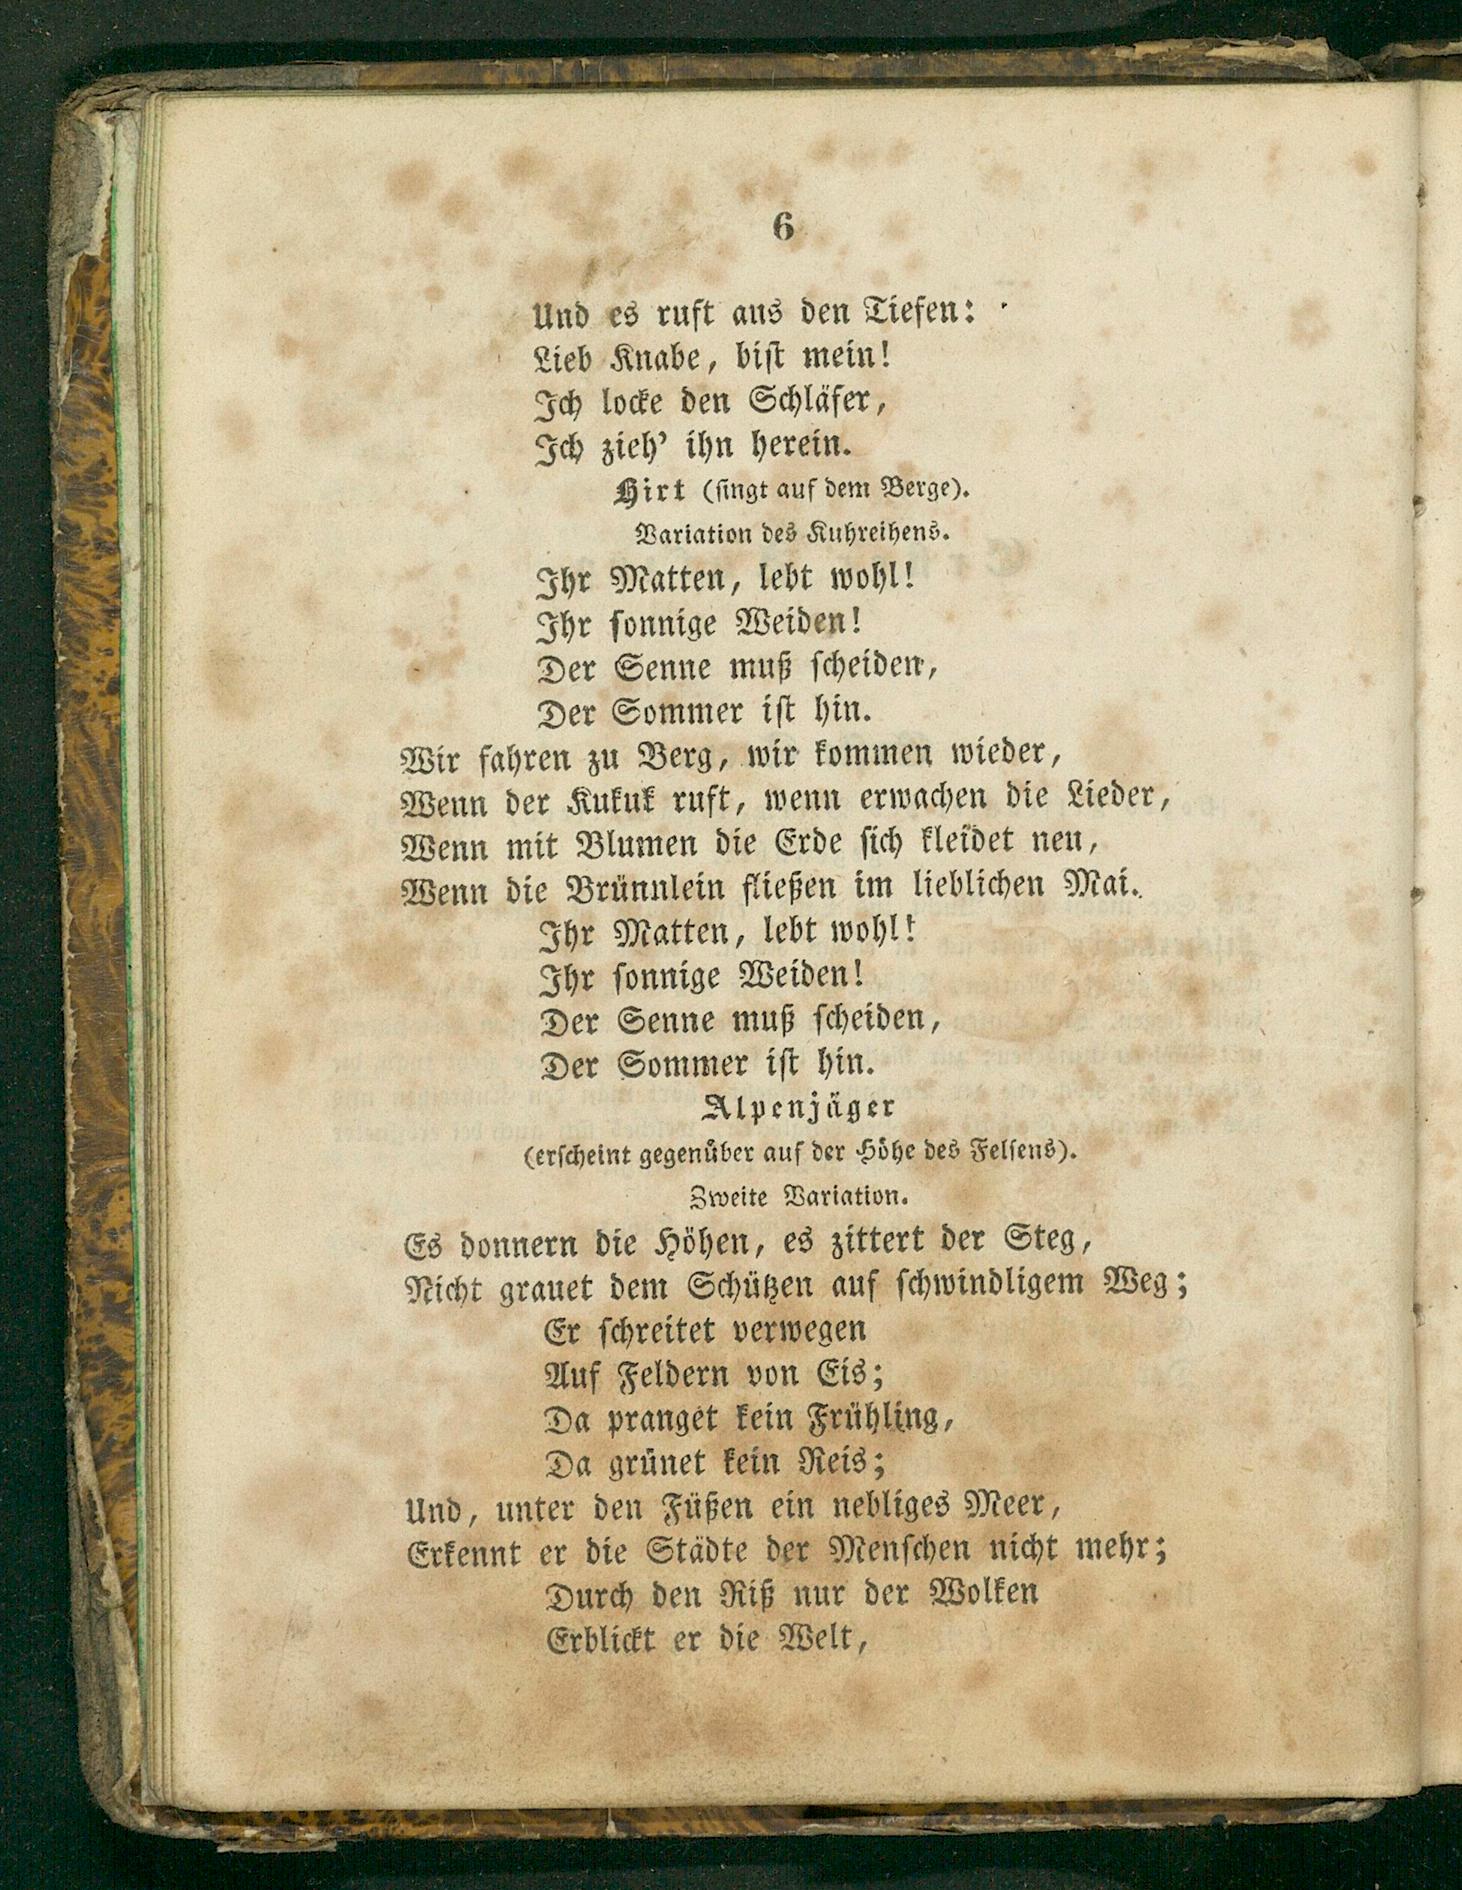 6
Und es ruft aus den Tiefen:
Lieb Knabe, biſt mein!
Ich locke den Schläfer,
Ich zieh' ihn herein.
Hirt (ſingt auf dem Berge).
Variation des Kuhreihens.
Ihr Matten, lebt wohl!
Ihr ſonnige Weiden!
Der Senne muß ſcheiden,
Der Sommer iſt hin.
Wir fahren zu Berg, wir kommen wieder,
Wenn der Kukuk ruft, wenn erwachen die Lieder,
Wenn mit Blumen die Erde ſich kleidet neu,
Wenn die Brünnlein fließen im lieblichen Mai.
Ihr Matten, lebt wohl!
Ihr ſonnige Weiden!
Der Senne muß ſcheiden,
Der Sommer iſt hin.
Alpenjäger
(erſcheint gegenüber auf der Höhe des Felſens).
Zweite Variation.
Es donnern die Höhen, es zittert der Steg,
Nicht grauet dem Schützen auf ſchwindligem Weg;
Er ſchreitet verwegen
Auf Feldern von Eis;
Da pranget kein Frühling,
Da grünet kein Reis;
Und, unter den Füßen ein nebliges Meer,
Erkennt er die Städte der Menſchen nicht mehr;
Durch den Riß nur der Wolken
Erblickt er die Welt,